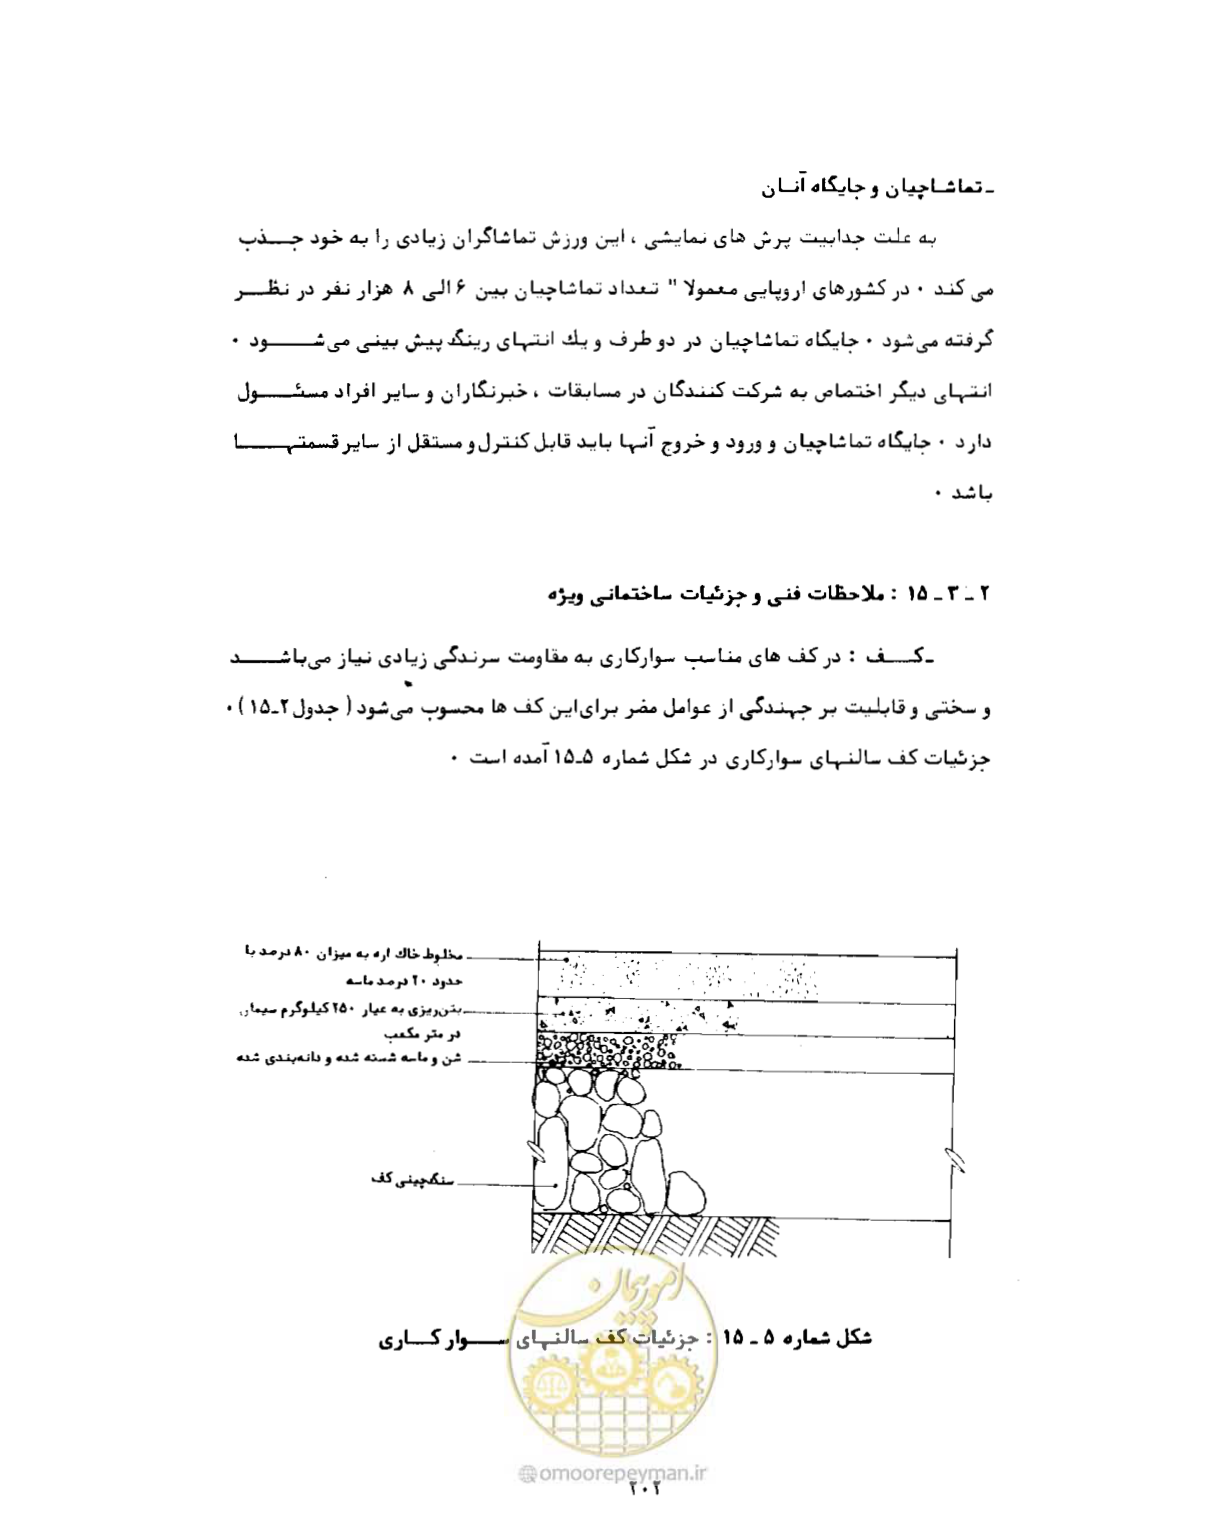 ـ تماشاچیان و جایگاه آنان
به علت جذابیت پرش های نمایشی ، این ورزش تماشاگران زیادی را به خود جذب
می کند ۰ در کشورهای اروپایی معمولا" تعداد تماشاچیان بین ۶ الی ۸ هزار نفر در نظر
گرفته می‌شود ۰ جایگاه تماشاچیان در دو طرف و یك انتهای رینگ پیش بینی می‌شود ۰
انتهای دیگر اختصاص به شرکت کنندگان در مسابقات ، خبرنگاران و سایر افراد مسئول
دارد ۰ جایگاه تماشاچیان و ورود و خروج آنها باید قابل کنترل و مستقل از سایر قسمتها
باشد ۰
۲ ـ ۳ ـ ۱۵ : ملاحظات فنی و جزئیات ساختمانی ویژه
ـ کف : در کف های مناسب سوارکاری به مقاومت سرندگی زیادی نیاز می‌باشد
و سختی و قابلیت بر جهندگی از عوامل مضر برای این کف ها محسوب می‌شود ( جدول ۲ـ۱۵ ) ۰
جزئیات کف سالنهای سوارکاری در شکل شماره ۵ـ۱۵ آمده است ۰
مخلوط خاك اره به میزان ۸۰ درصد با
حدود ۲۰ درصد ماسه
بتن‌ریزی به عیار ۲۵۰ کیلوگرم سیمان
در متر مکعب
شن و ماسه شسته شده و دانه‌بندی شده
سنگچینی کف
شکل شماره ۵ ـ ۱۵ : جزئیات کف سالنهای سوار کاری
امور پیمان
omoorepeyman.ir
۲۰۲